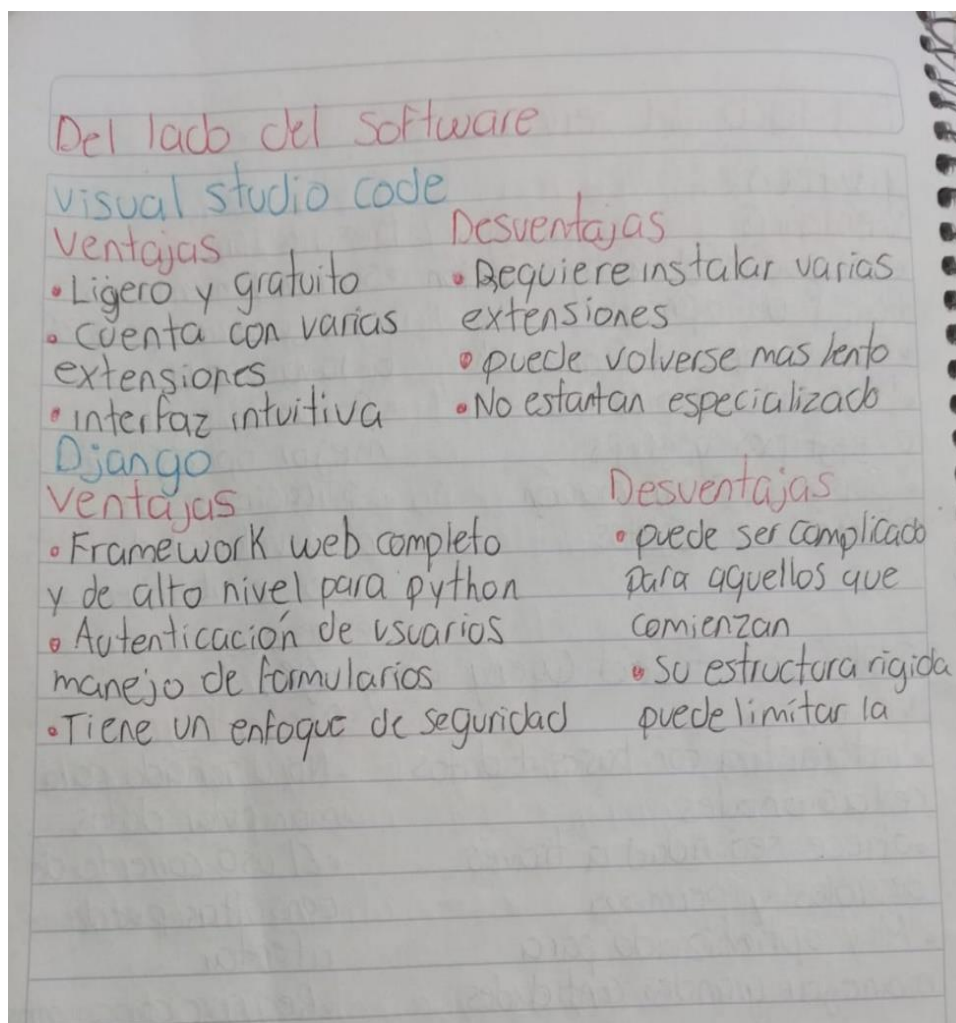 Del lado del Software
visual studio code
Ventajas
• Ligero y gratuito
• cuenta con varias
extensiones
• interfaz intuitiva
Desventajas
• Requiere instalar varias
extensiones
• puede volverse mas lento
• No estantan especializado
Django
Ventajas
• Framework web completo
y de alto nivel para python
• Autenticación de usuarios
manejo de formularios
• Tiene un enfoque de seguridad
Desventajas
• puede ser complicado
para aquellos que
comienzan
• Su estructura rigida
puede limitar la